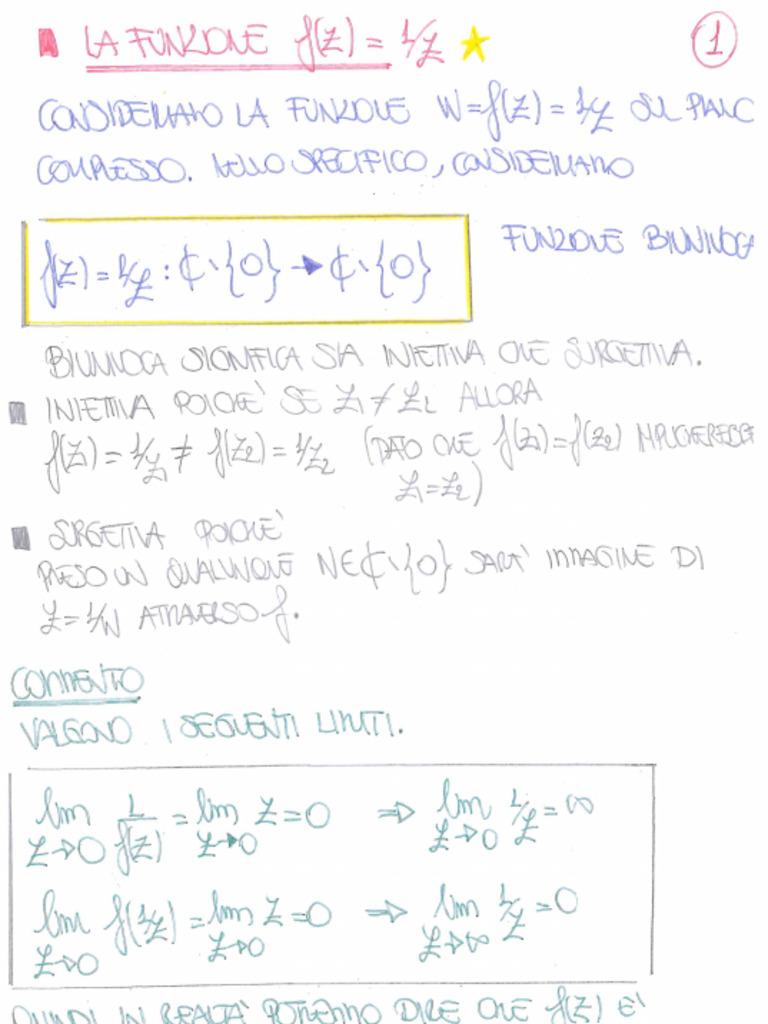 LA FUNZIONE f(z) = 1/z ①
CONSIDERIAMO LA FUNZIONE W=f(z)=1/z SUL PIANO
COMPLESSO. NELLO SPECIFICO, CONSIDERIAMO
f(z)=1/z : ℂ\{0} → ℂ\{0} FUNZIONE BIUNIVOCA
BIUNIVOCA SIGNIFICA SIA INIETTIVA CHE SURGETTIVA.
INIETTIVA POICHE' SE z₁ ≠ z₂ ALLORA
f(z₁)=1/z₁ ≠ f(z₂)=1/z₂ (DATO CHE f(z₁)=f(z₂) IMPLICHEREBBE
z₁=z₂)
SURGETTIVA POICHE'
PRESO UN QUALUNQUE W∈ℂ\{0} SARA' IMMAGINE DI
z=1/W ATTRAVERSO f.
COMMENTO
VALGONO I SEGUENTI LIMITI.
lim z→0 1/f(z) = lim z→0 z=0 ⇒ lim z→0 1/z=∞
lim z→0 f(1/z) = lim z→0 z=0 ⇒ lim z→∞ 1/z=0
QUINDI IN REALTA' POTREMMO DIRE CHE f(z) E'